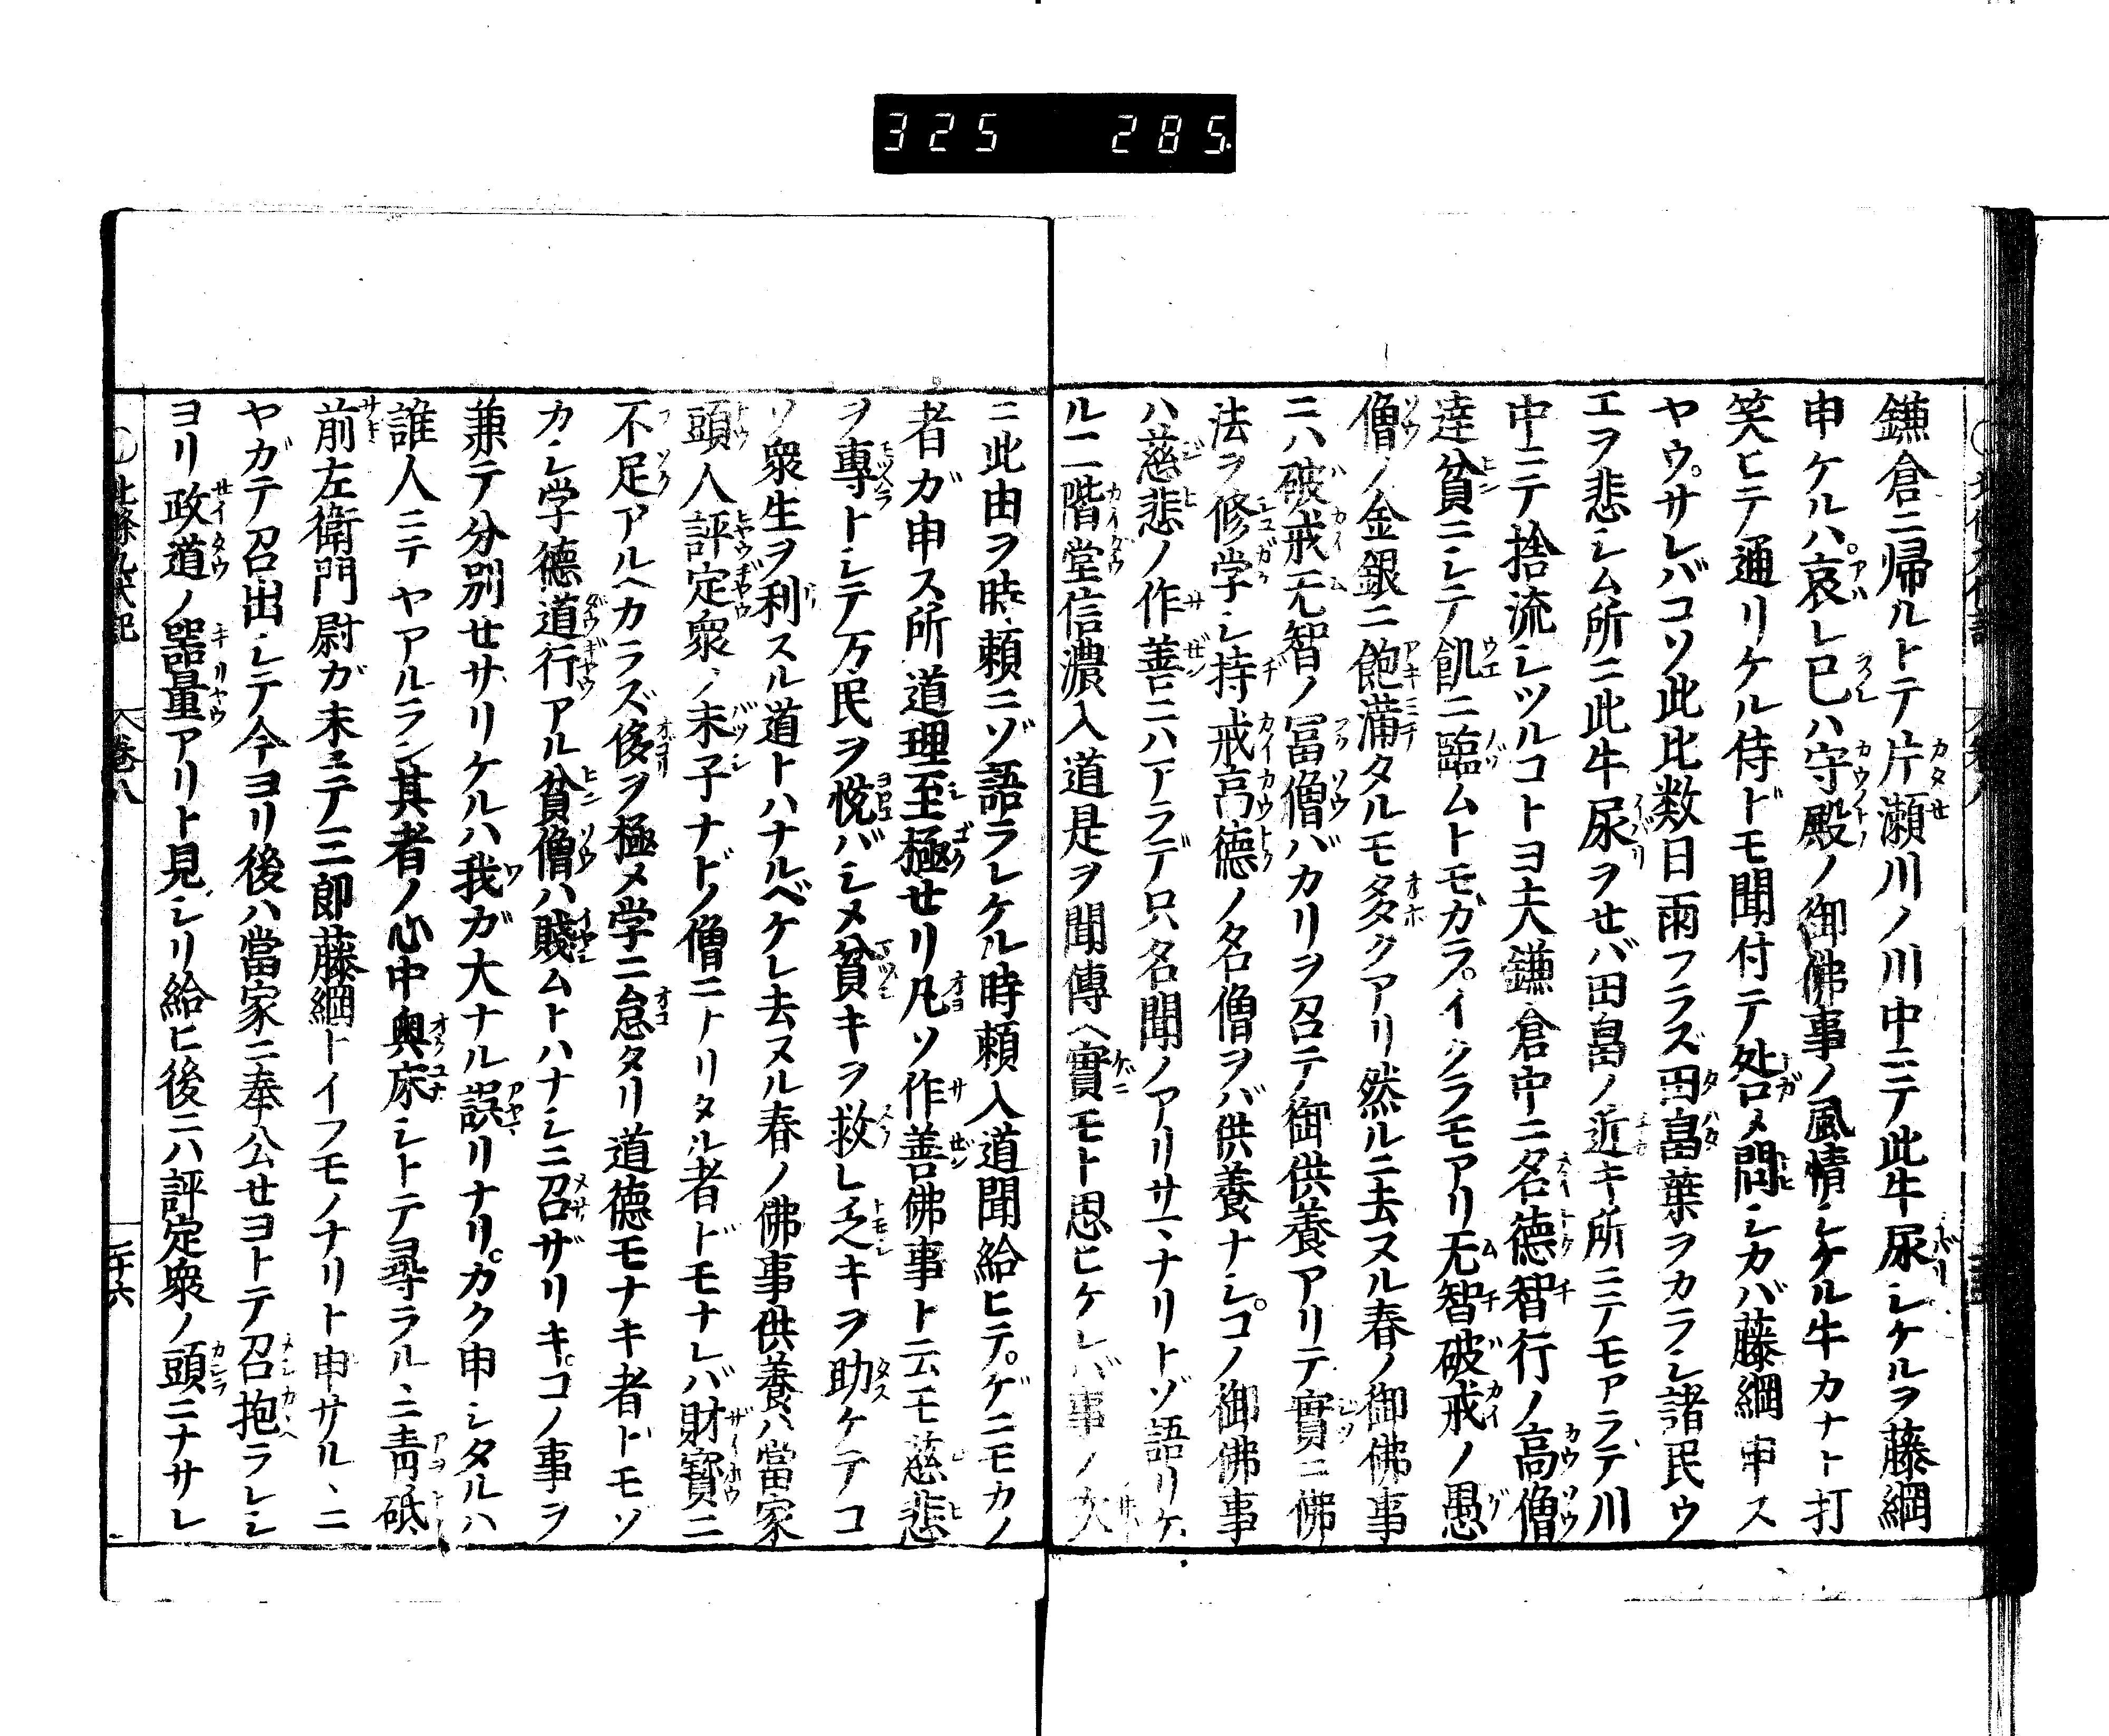 325 285
鎌倉ニ帰ルトテ片瀬川ノ川中ニテ此牛尿シケルヲ藤綱
申ケルハ。哀レ已ハ守殿ノ御佛事ノ風情シケル牛カナト打
笑ヒテ通リケル侍ドモ聞付テ咎メ問シカバ藤綱申ス
ヤウ。サレバコソ此比数日雨フラズ田畠葉ヲカラシ諸民ウ
エヲ悲シム所ニ此牛尿ヲセバ田畠ノ近キ所ニテモアラデ川
中ニテ捨流シツルコトヨ夫鎌倉中ニ名德智行ノ高僧
達貧ニシテ飢ニ臨ムトモガラ。イクラモアリ无智破戒ノ愚
僧ノ金銀ニ飽滿タルモ多クアリ然ルニ去ヌル春ノ御佛事
ニハ破戒无智ノ冨僧バカリヲ召テノ御供養アリテ實ニ佛
法ヲ修学シ持戒高德ノ名僧ヲバ供養ナシ。コノ御佛事
ハ慈悲ノ作善ニハアラデ只名聞ノアリサマナリトゾ語リケ
ル二階堂信濃入道是ヲ聞傳ヘ實モト思ヒケレバ事ノ次
ニ此由ヲ時頼ニゾ語ラレケル時頼入道聞給ヒテ。ゲニモカノ
者ガ申ス所道理至極せリ凡ソ作善佛事ト云モ慈悲
ヲ專トシテ万民ヲ悦バシメ貧キヲ救レ乏キヲ助ケテコ
ソ衆生ヲ利スル道トハナルベケレ去ヌル春ノ佛事供養ハ當家
頭人評定衆ノ末子ナドノ僧ニナリタル者ドモナレバ財寳ニ
不足アルヘカラズ侈ヲ極メ学ニ怠タリ道德モナキ者ドモゾ
カシ学德道行アル貧僧ハ賤ムトハナシニ召ザリキ。コノ事ヲ
兼テ分別せサリケルハ我ガ大ナル誤リナリ。カク申シタルハ
誰人ニテヤアルラン其者ノ心中奥床シトテ尋ラルヽニ青砥
前左衛門尉ガ末ニテ三郎藤綱トイフモノナリト申サルヽニ
ヤガテ召出シテ今ヨリ後ハ當家ニ奉公せヨトテ召抱ラレシ
ヨリ政道ノ噐量アリト見シリ給ヒ後ニハ評定衆ノ頭ニナサレ
北條九代記 卷八 二十六